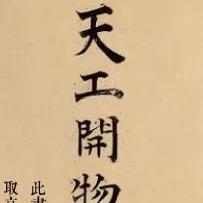 天工開物
此書
取